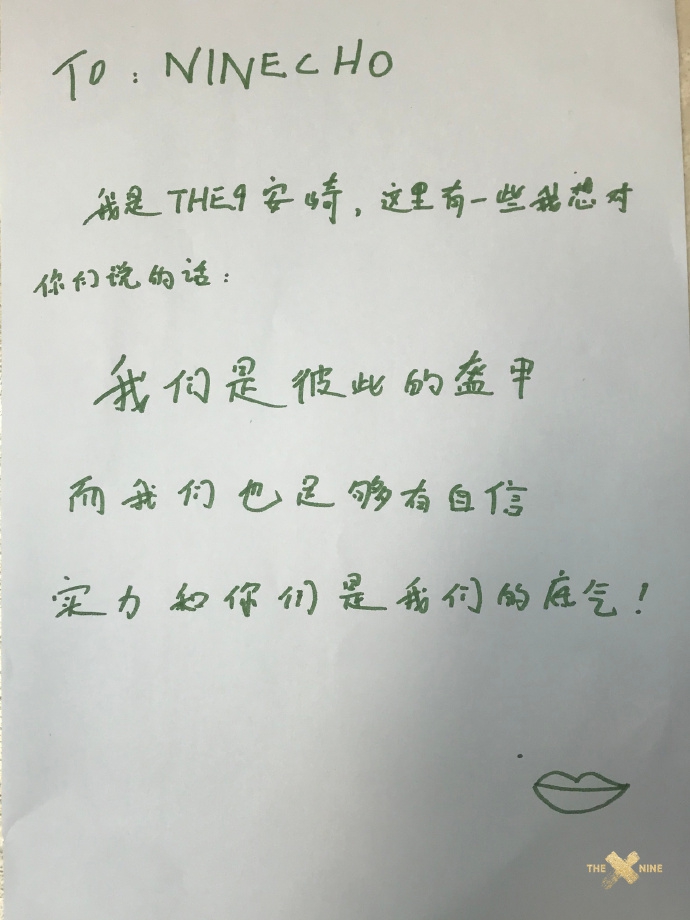 TO: NINECHO
我是THE9安崎，这里有一些我想对
你们说的话：
我们是彼此的盔甲
而我们也足够有自信
实力和你们是我们的底气！
THE NINE